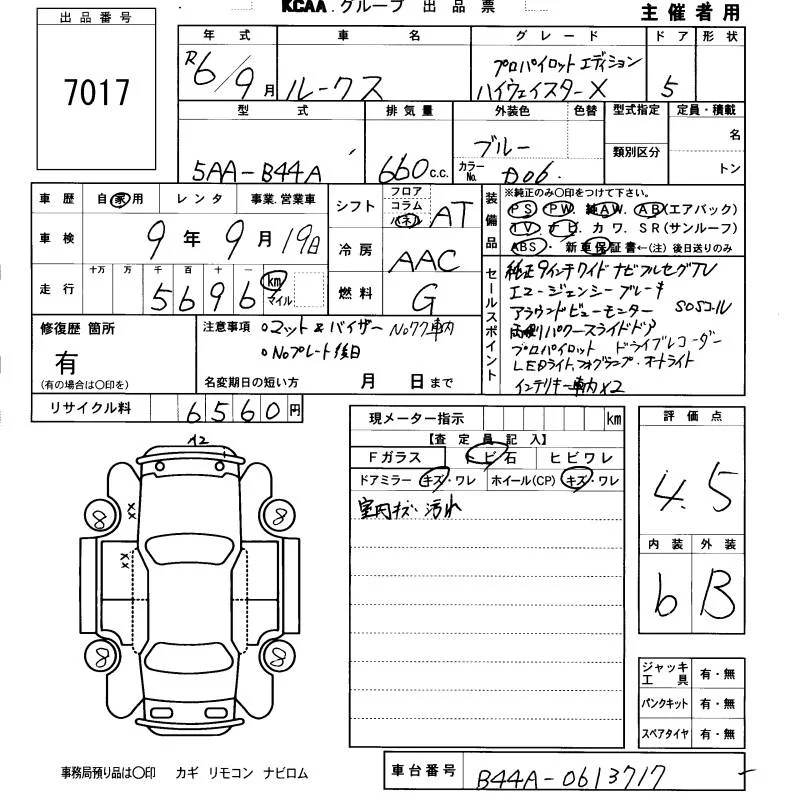 KCAA.グループ 出品票
主催者用
出品番号
7017
年式 車名 グレード ドア 形状
R6/9月 ルークス プロパイロットエディション ハイウェイスターX 5
型式 排気量 外装色 色替 型式指定 定員・積載
類別区分 名
5AA-B44A 660c.c. ブルー カラーNo. D06. トン
車歴 自家用 レンタ 事業.営業車
シフト フロア コラム パネル AT
装備品
※純正のみ〇印をつけて下さい。
PS PW. 純AW. AB(エアバック)
TV. ナビ. カワ. SR(サンルーフ)
ABS・ 新車保証書←(注)後日送りのみ
車検 9年9月19日
冷房 AAC
走行 十万 万 千 百 十 一
5696 km マイル
燃料 G
セールスポイント
純正9インチワイドナビフルセグTV
エマージェンシーブレーキ
アラウンドビューモニター SOSコール
両側パワースライドドア
プロパイロット ドライブレコーダー
LEDライト,フォグランプ.オートライト
インテリキー車内x2
修復歴 箇所
有
(有の場合は〇印を)
注意事項 ○マット&バイザーNo77車内
○Noプレート後日
名変期日の短い方 月 日まで
リサイクル料 6560円
現メーター指示 km
【査定員記入】
Fガラス トビ石 ヒビワレ
ドアミラー キズ・ワレ ホイール(CP) キズ・ワレ
室内キズ・汚れ
評価点
4.5
内装 外装
b B
A2
8 xx 8
xx
8 8
ジャッキ工具 有・無
パンクキット 有・無
スペアタイヤ 有・無
事務局預り品は〇印 カギ リモコン ナビロム
車台番号 B44A-0613717